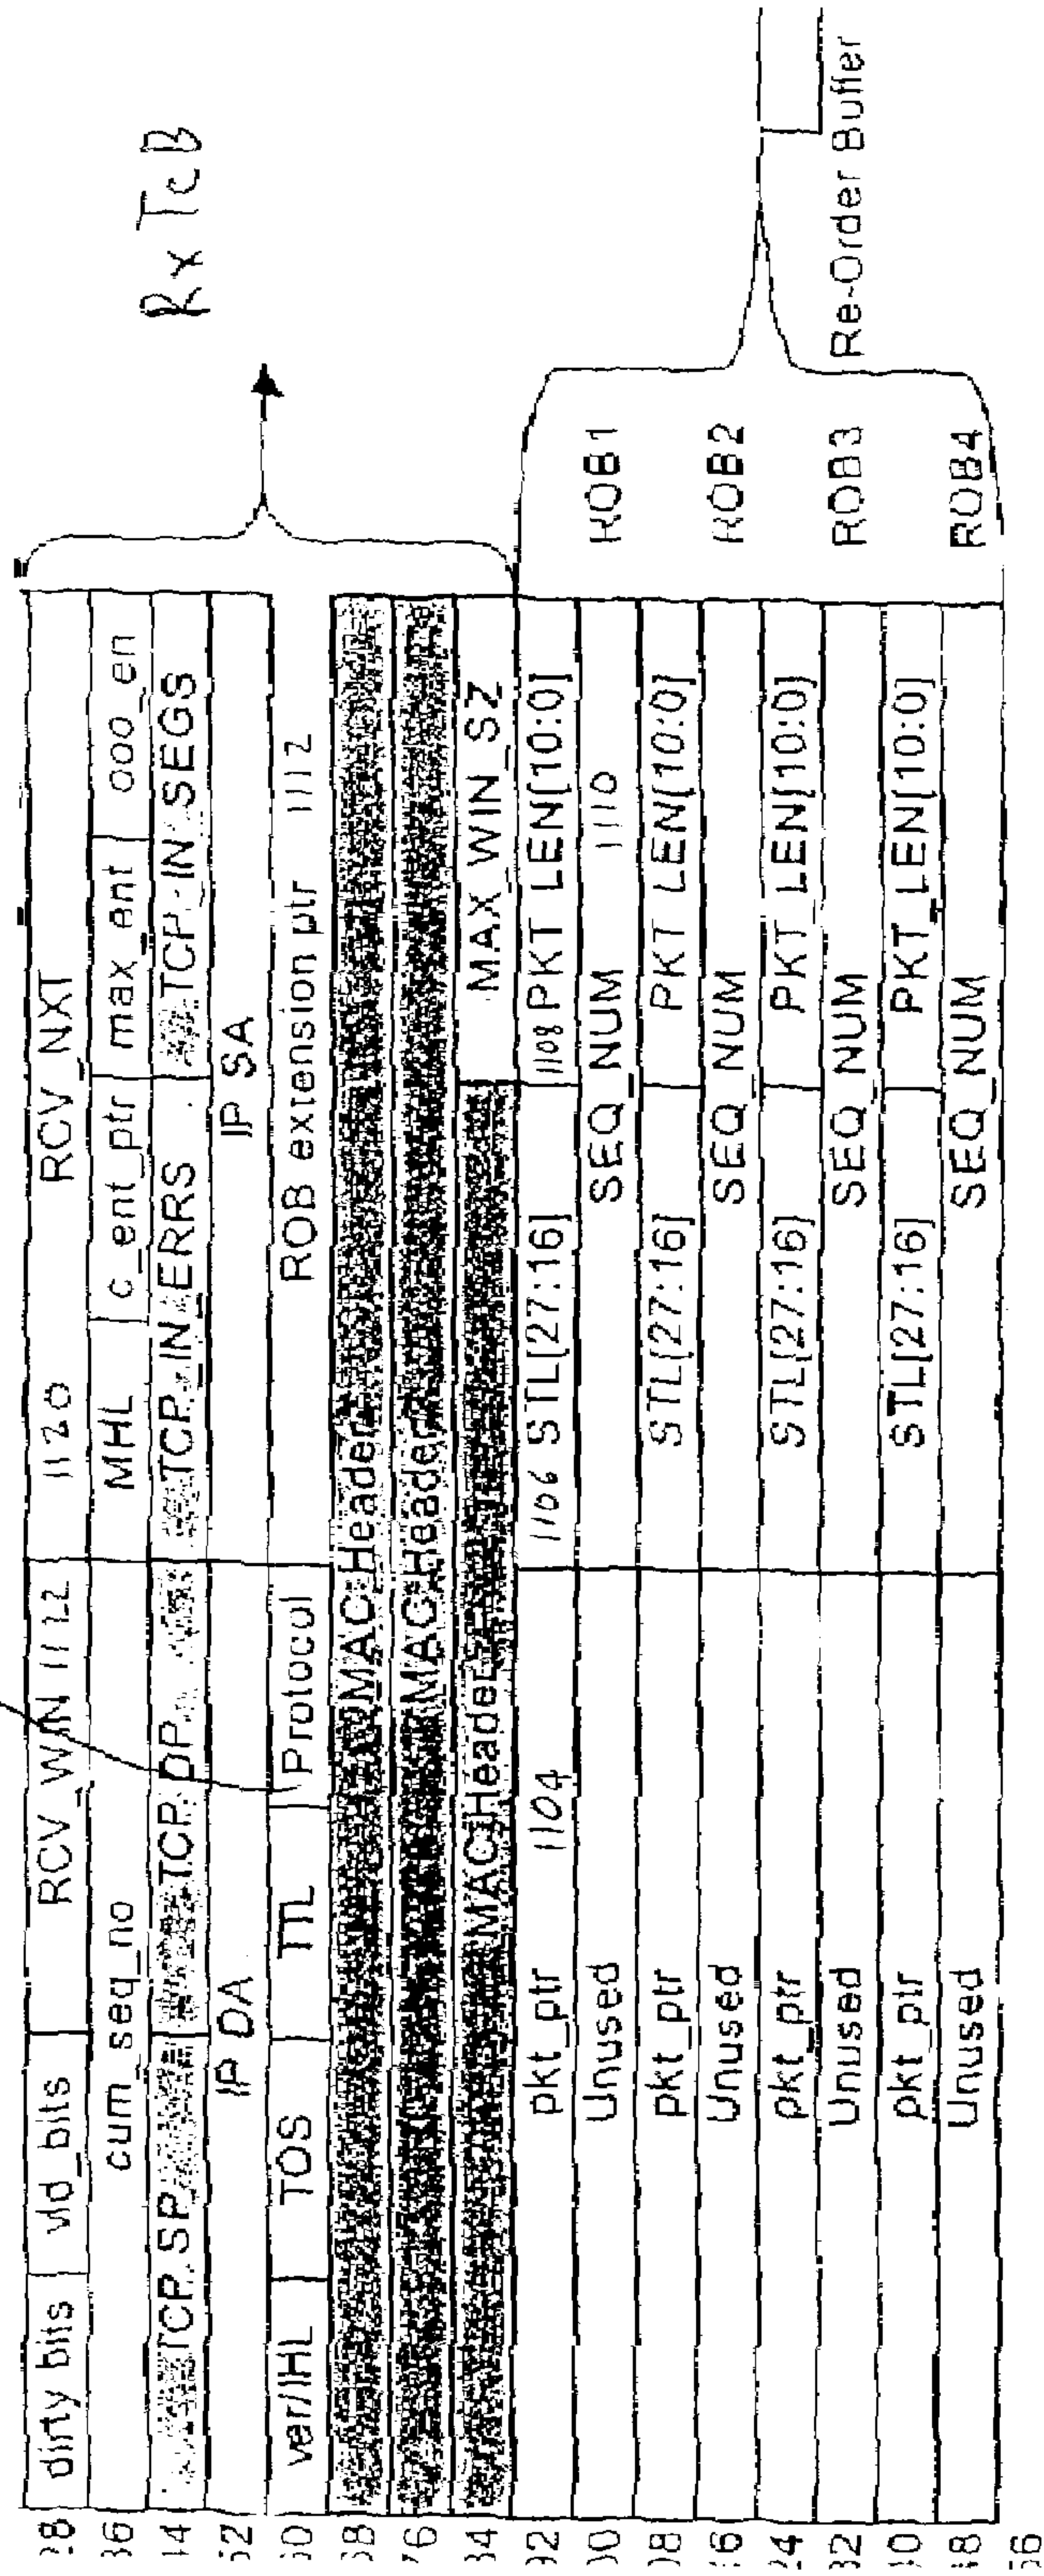 28 dirty bits vld_bits RCV_WIN 1122 1120 RCV_NXT
36 cum_seq_no MHL c_ent_ptr max_ent ooo_en
44 TCP SP TCP DP TCP_IN_ERRS TCP_IN SEGS
52 IP DA IP SA
60 ver/IHL TOS TTL Protocol ROB extension ptr 1112
68 MAC Header
76 MAC Header
84 MAC Header MAX_WIN_SZ
RxTcB
92 pkt_ptr 1104 1106 STL[27:16] 1108 PKT LEN[10:0]
00 Unused SEQ_NUM 1110 ROB1
08 pkt_ptr STL[27:16] PKT LEN[10:0]
16 Unused SEQ_NUM ROB2
24 pkt_ptr STL[27:16] PKT_LEN[10:0]
32 Unused SEQ_NUM ROB3
40 pkt_ptr STL[27:16] PKT_LEN[10:0]
48 Unused SEQ_NUM ROB4
56
Re-Order Buffer